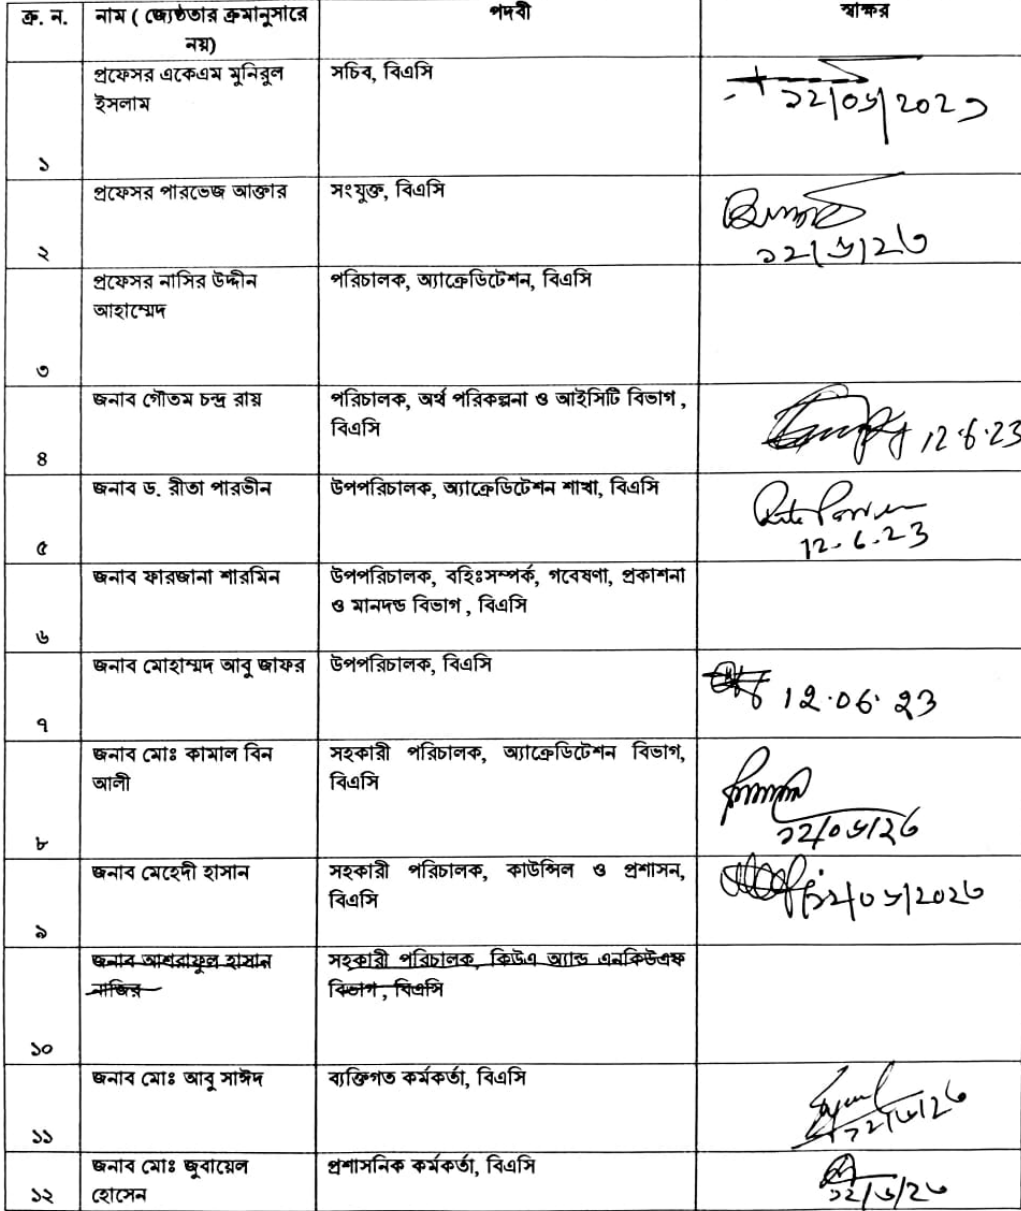 ক্র. ন. নাম ( জ্যেষ্ঠতার ক্রমানুসারে পদবী স্বাক্ষর
নয়)
প্রফেসর একেএম মুনিরুল সচিব, বিএসি
ইসলাম
১২/০৬/২০২৩
১
প্রফেসর পারভেজ আক্তার সংযুক্ত, বিএসি
২ ১২/৬/২৩
প্রফেসর নাসির উদ্দীন পরিচালক, অ্যাক্রেডিটেশন, বিএসি
আহাম্মেদ
৩
জনাব গৌতম চন্দ্র রায় পরিচালক, অর্থ পরিকল্পনা ও আইসিটি বিভাগ ,
বিএসি
৪ 12.6.23
জনাব ড. রীতা পারভীন উপপরিচালক, অ্যাক্রেডিটেশন শাখা, বিএসি
৫ 12.6.23
জনাব ফারজানা শারমিন উপপরিচালক, বহিঃসম্পর্ক, গবেষণা, প্রকাশনা
ও মানদন্ড বিভাগ , বিএসি
৬
জনাব মোহাম্মদ আবু জাফর উপপরিচালক, বিএসি
৭ 12.06.23
জনাব মোঃ কামাল বিন সহকারী পরিচালক, অ্যাক্রেডিটেশন বিভাগ,
আলী বিএসি
৮ ১২/০৬/২৩
জনাব মেহেদী হাসান সহকারী পরিচালক, কাউন্সিল ও প্রশাসন,
বিএসি
৯ ১২/০৬/২০২৩
জনাব আশরাফুল হাসান সহকারী পরিচালক, কিউএ অ্যান্ড এনকিউএফ
নাজির বিভাগ , বিএসি
১০
জনাব মোঃ আবু সাঈদ ব্যক্তিগত কর্মকর্তা, বিএসি
১১ ১২/৬/২৩
জনাব মোঃ জুবায়েল প্রশাসনিক কর্মকর্তা, বিএসি
১২ হোসেন ১২/৬/২৩